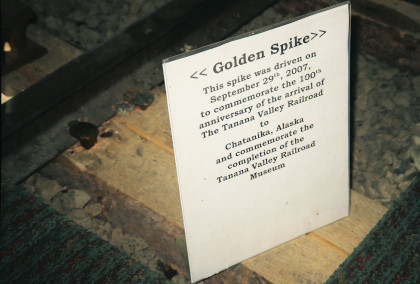 << Golden Spike>>
This spike was driven on
September 29th, 2007,
to commemorate the 100th
anniversary of the arrival of
The Tanana Valley Railroad
to
Chatanika, Alaska
and commemorate the
completion of the
Tanana Valley Railroad
Museum